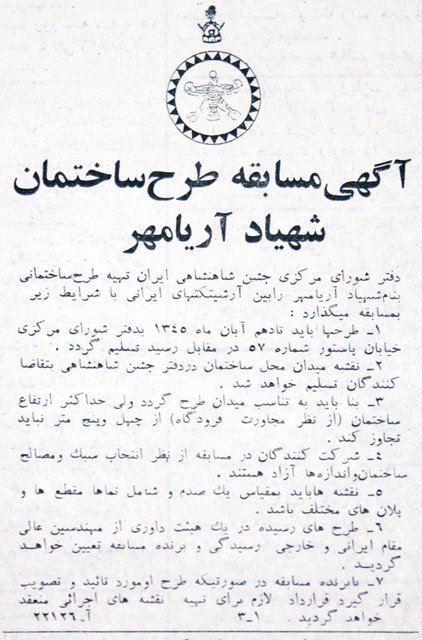 آگهی مسابقه طرح ساختمان
شهیاد آریامهر
دفتر شورای مرکزی جشن شاهنشاهی ایران تهیه طرح ساختمانی
بنام شهیاد آریامهر رابین آرشیتکتهای ایرانی با شرایط زیر
بمسابقه میگذارد :
۱ـ طرحها باید تادهم آبان ماه ۱۳۴۵ بدفتر شورای مرکزی
خیابان پاستور شماره ۵۷ در مقابل رسید تسلیم گردد .
۲ـ نقشه میدان محل ساختمان دردفتر جشن شاهنشاهی بتقاضا
کنندگان تسلیم خواهد شد .
۳ـ بنا باید به تناسب میدان طرح گردد ولی حداکثر ارتفاع
ساختمان (از نظر مجاورت فرودگاه) از چهل وپنج متر نباید
تجاوز کند .
۴ـ شرکت کنندگان در مسابقه از نظر انتخاب سبك ومصالح
ساختمان‌واندازه‌ها آزاد هستند .
۵ـ نقشه هاباید بمقیاس یك صدم و شامل نماها مقطع ها و
پلان های مختلف باشد .
۶ـ طرح های رسیده در یك هیئت داوری از مهندسین عالی
مقام ایرانی و خارجی رسیدگی و برنده مسابقه تعیین خواهد
گردید .
۷ـ بابرنده مسابقه در صورتیکه طرح اومورد تائید و تصویب
قرار گیرد قرارداد لازم برای تهیه نقشه های اجرائی منعقد
خواهد گردید . ۱ـ۳ آ. ۲۲۱۲۶